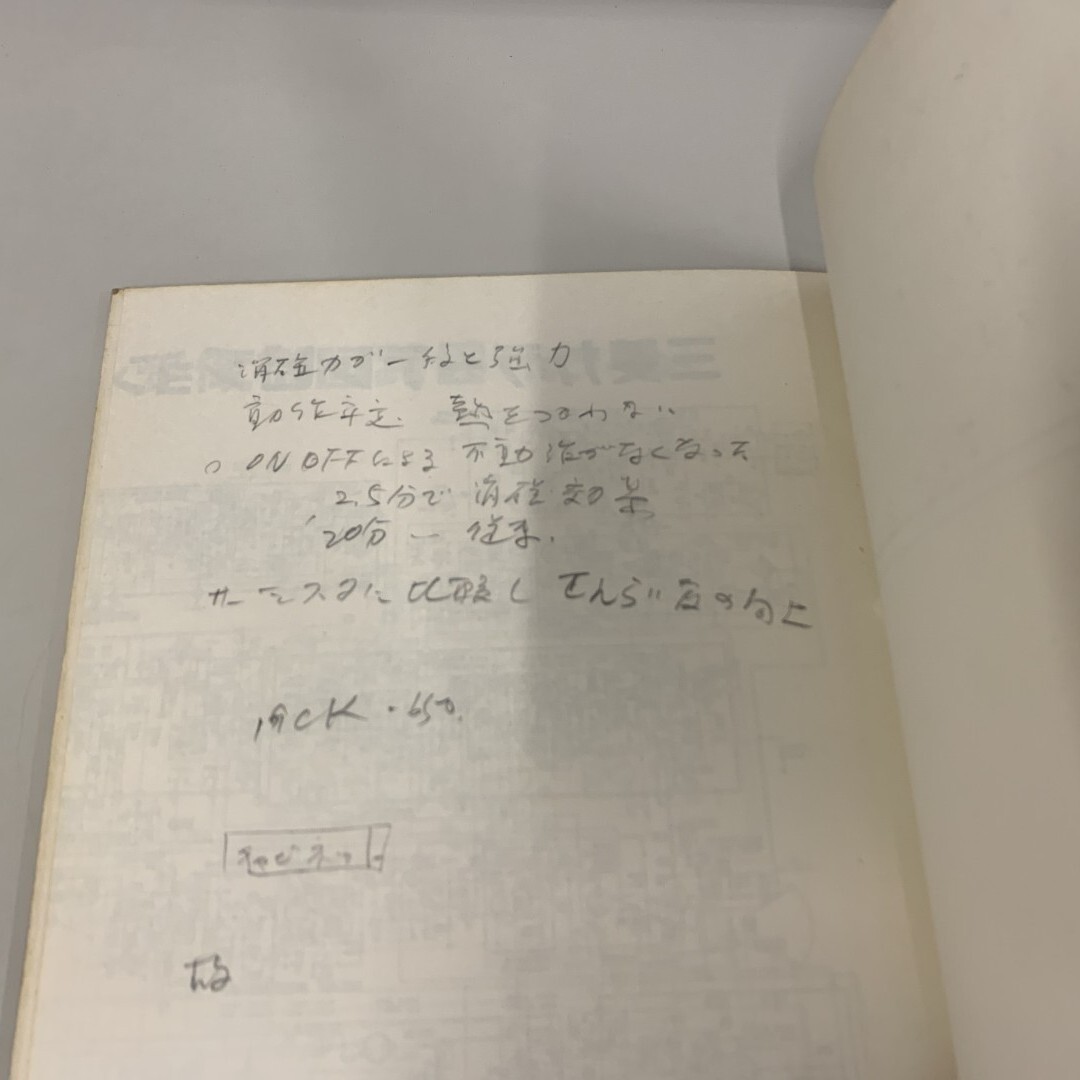 消磁力が一段と強力
動作安定. 熱をつかわない
○ ON OFFによる 不動作がなくなって
2.5分で 消磁効果
20分 ー 従来.
サーミスタに比較し
CK・650.
キャビネット